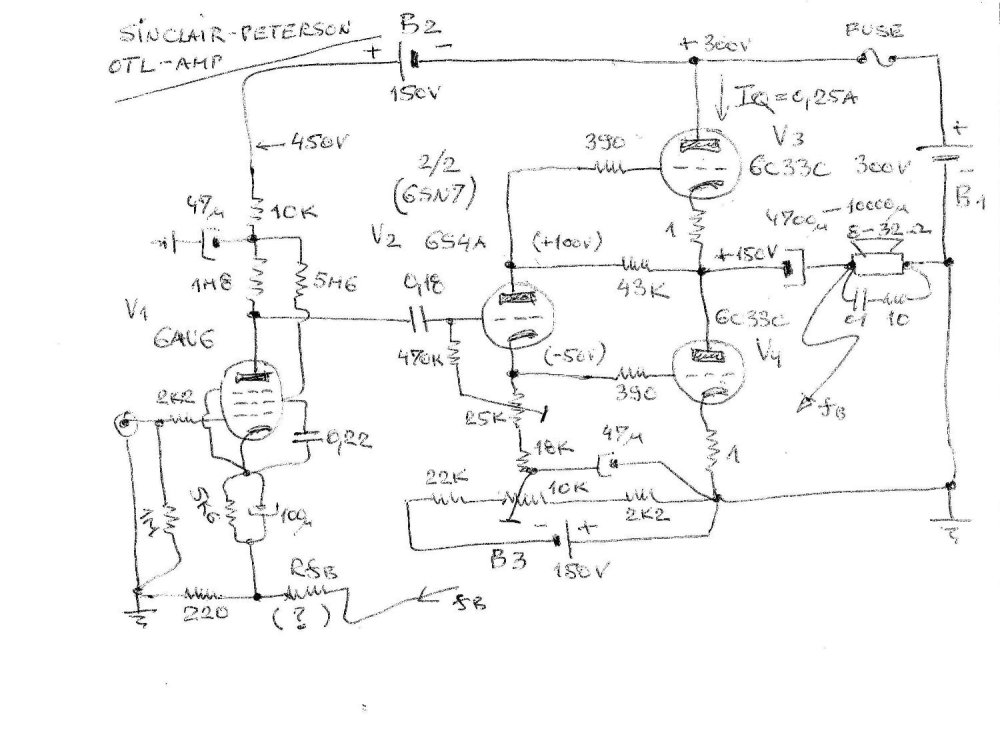 SINCLAIR-PETERSON
OTL-AMP
B2
+ -
150V
+300V
FUSE
IQ=0,25A
← 450V
390
V3
6C33C
300V
+
-
B1
2/2
(6SN7)
47μ
10K
V2
6S4A
(+100V)
1
4700μ-10000μ
8-32Ω
+150V
43K
1M8
5M6
0,18
0,1
10
V1
6AU6
470K
(-50V)
390
6C33C
V4
fB
2K2
25K
0,22
18K
47μ
1
22K
10K
2K2
5K6
100μ
- +
B3
150V
RfB
fB
220
(?)